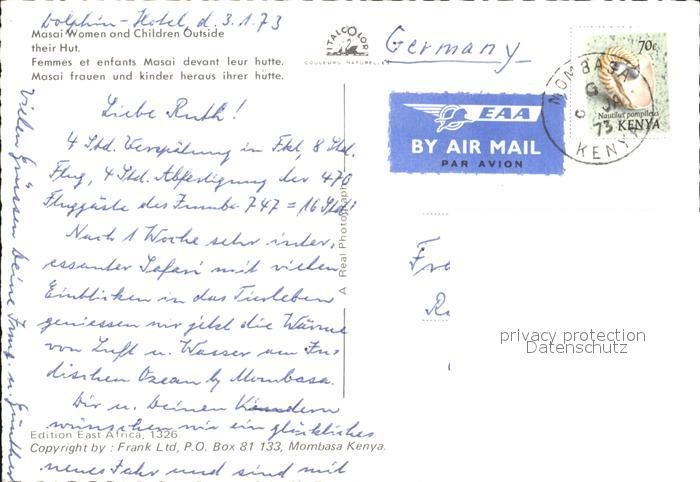 Dolphin-Hotel, d. 3.1.73
Masai Women and Children Outside
their Hut.
Femmes et enfants Masai devant leur hutte.
Masai frauen und kinder heraus ihrer hütte.
ITALCOLOR
COULEURS NATURELLES
Liebe Ruth!
4 Std. Verspätung in Fkf, 8 Std.
Flug, 4 Std. Abfertigung der 470
Fluggäste des Jumbo 747 = 16 Std!
Nach 1 Woche sehr inter-
essanter Safari mit vielen
Einblicken in das Tierleben
geniessen wir jetzt die Wärme
von Luft u. Wasser am In-
dischen Ozean b/ Mombasa.
Dir u. Deinen Kindern
wünschen wir ein glückliches
neues Jahr und sind mit
Vielen Grüssen Deine u. Günther
Edition East Africa, 1326.
Copyright by : Frank Ltd, P.O. Box 81 133, Mombasa Kenya.
A Real Photograph
Germany
EAA
BY AIR MAIL
PAR AVION
70c
Nautilus pompileus
KENYA
MOMBASA
73
KENYA
Fr
R
privacy protection
Datenschutz